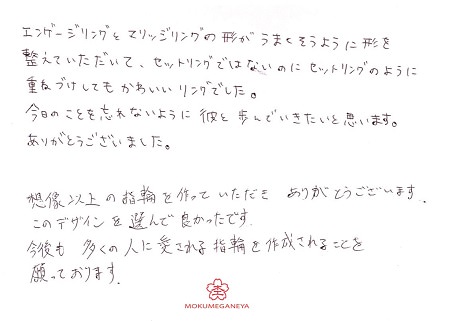 エンゲージリングとマリッジリングの形がうまくそうように形を
整えていただいて、セットリングではないのにセットリングのように
重ねづけしてもかわいいリングでした。
今日のことを忘れないように彼と歩んでいきたいと思います。
ありがとうございました。
想像以上の指輪を作っていただきありがとうございます.
このデザインを選んで良かったです.
今後も多くの人に愛される指輪を作成されることを
願っております.
MOKUMEGANEYA